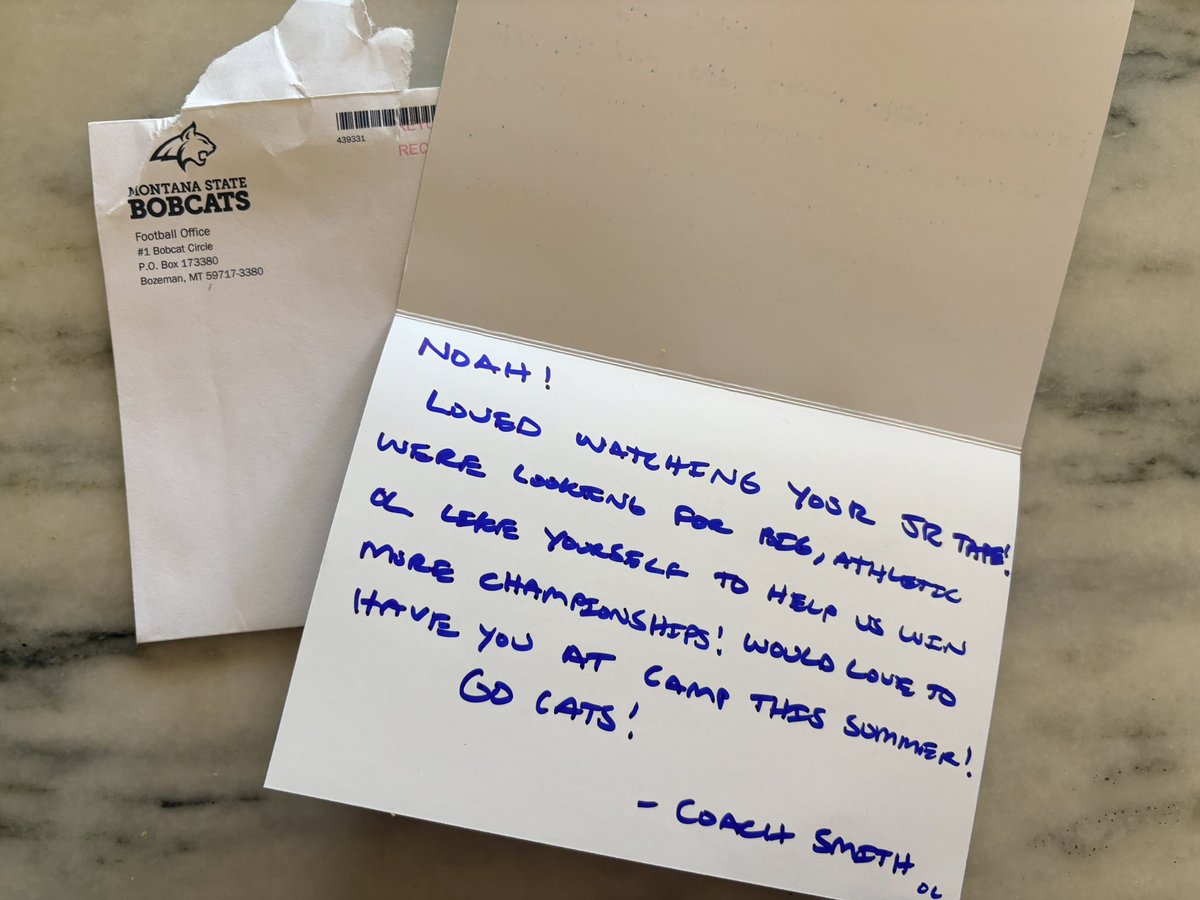 439331
REQ
MONTANA STATE
BOBCATS
Football Office
#1 Bobcat Circle
P.O. Box 173380
Bozeman, MT 59717-3380
NOAH!
LOVED WATCHING YOUR JR TAPE!
WERE LOOKING FOR BIG, ATHLETIC
OL LIKE YOURSELF TO HELP US WIN
MORE CHAMPIONSHIPS! WOULD LOVE TO
HAVE YOU AT CAMP THIS SUMMER!
GO CATS!
- COACH SMITH
OL